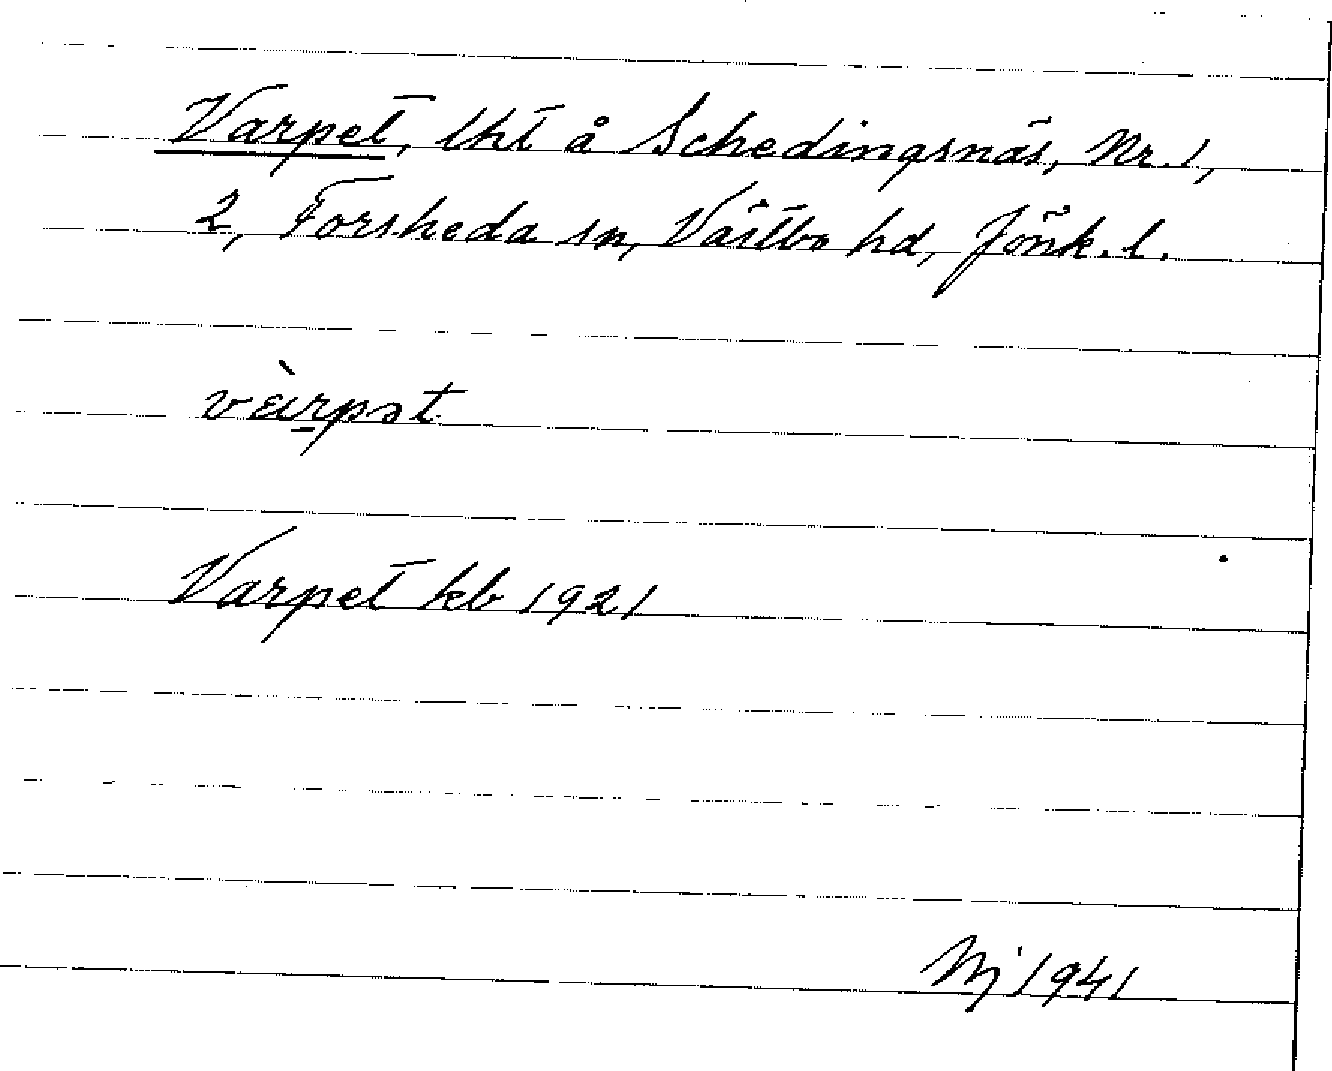 Varpet, lht å Schedingsnäs, Nr. 1,
2, Forsheda sn, Västbo hd, Jönk. l.
vὲırpət
Varpet kb 1921
Nj 1941